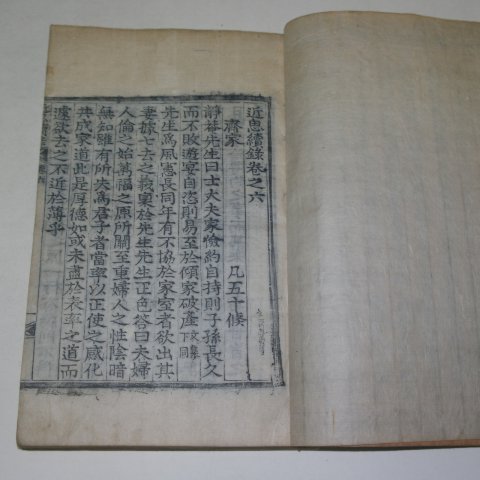 近思續錄卷之六
齊家　凡五十條
靜菴先生曰士大夫家儉約自持則子孫長久
而不敗遊宴自恣則易至於傾家破産
先生爲風憲長同年有不協於家室者欲出其
妻據七去之義稟於先生先生正色答曰夫婦
人倫之始萬福之原所關至重婦人之性陰暗
無知雖有所失爲君子者當率以正使之感化
共成家道此是厚德如或未盡於表率之道而
遽欲去之不近於薄乎